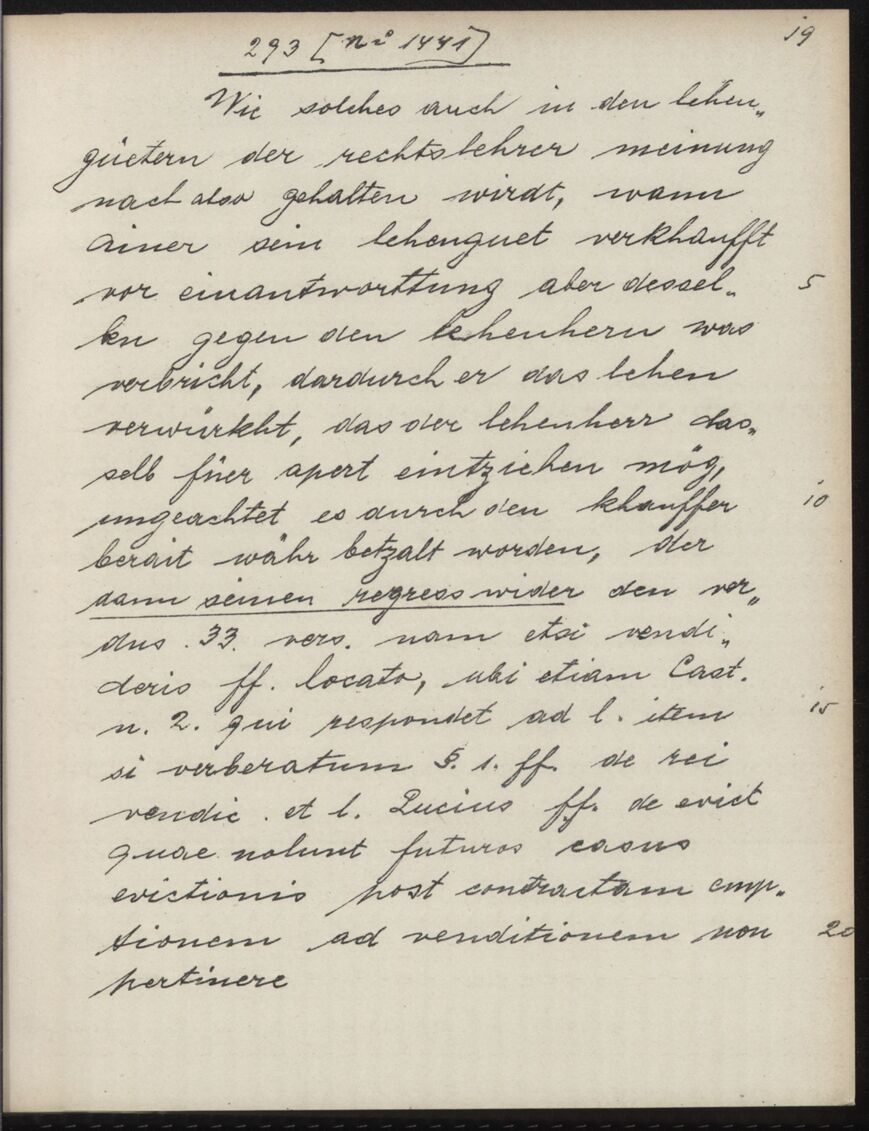 19
293 [nº 1441]
Wie solches auch in den lehen„
güetern der rechtslehrer meinung
nach also gehalten wirdt, wann
ainer sein lehenguet verkhaufft
vor einantworttung aber dessel„ 5
ben gegen den lehenhern was
verbricht, dardurch er das lehen
verwürkht, das der lehenherr das„
selb füer apert eintziehen mög,
ungeachtet es durch den khauffer 10
berait währ betzalt worden, der
dann seinen regress wider den ver„
dus. 33. vers. nam etsi vendi„
deris ff. locato, ubi etiam Cast.
n. 2. qui respondet ad l. item 15
si verberatum §. 1. ff. de rei
vendic. et l. Lucius ff. de evict
quae nolunt futuros casus
evictionis post contractam emp„
tionem ad venditionem non 20
pertinere